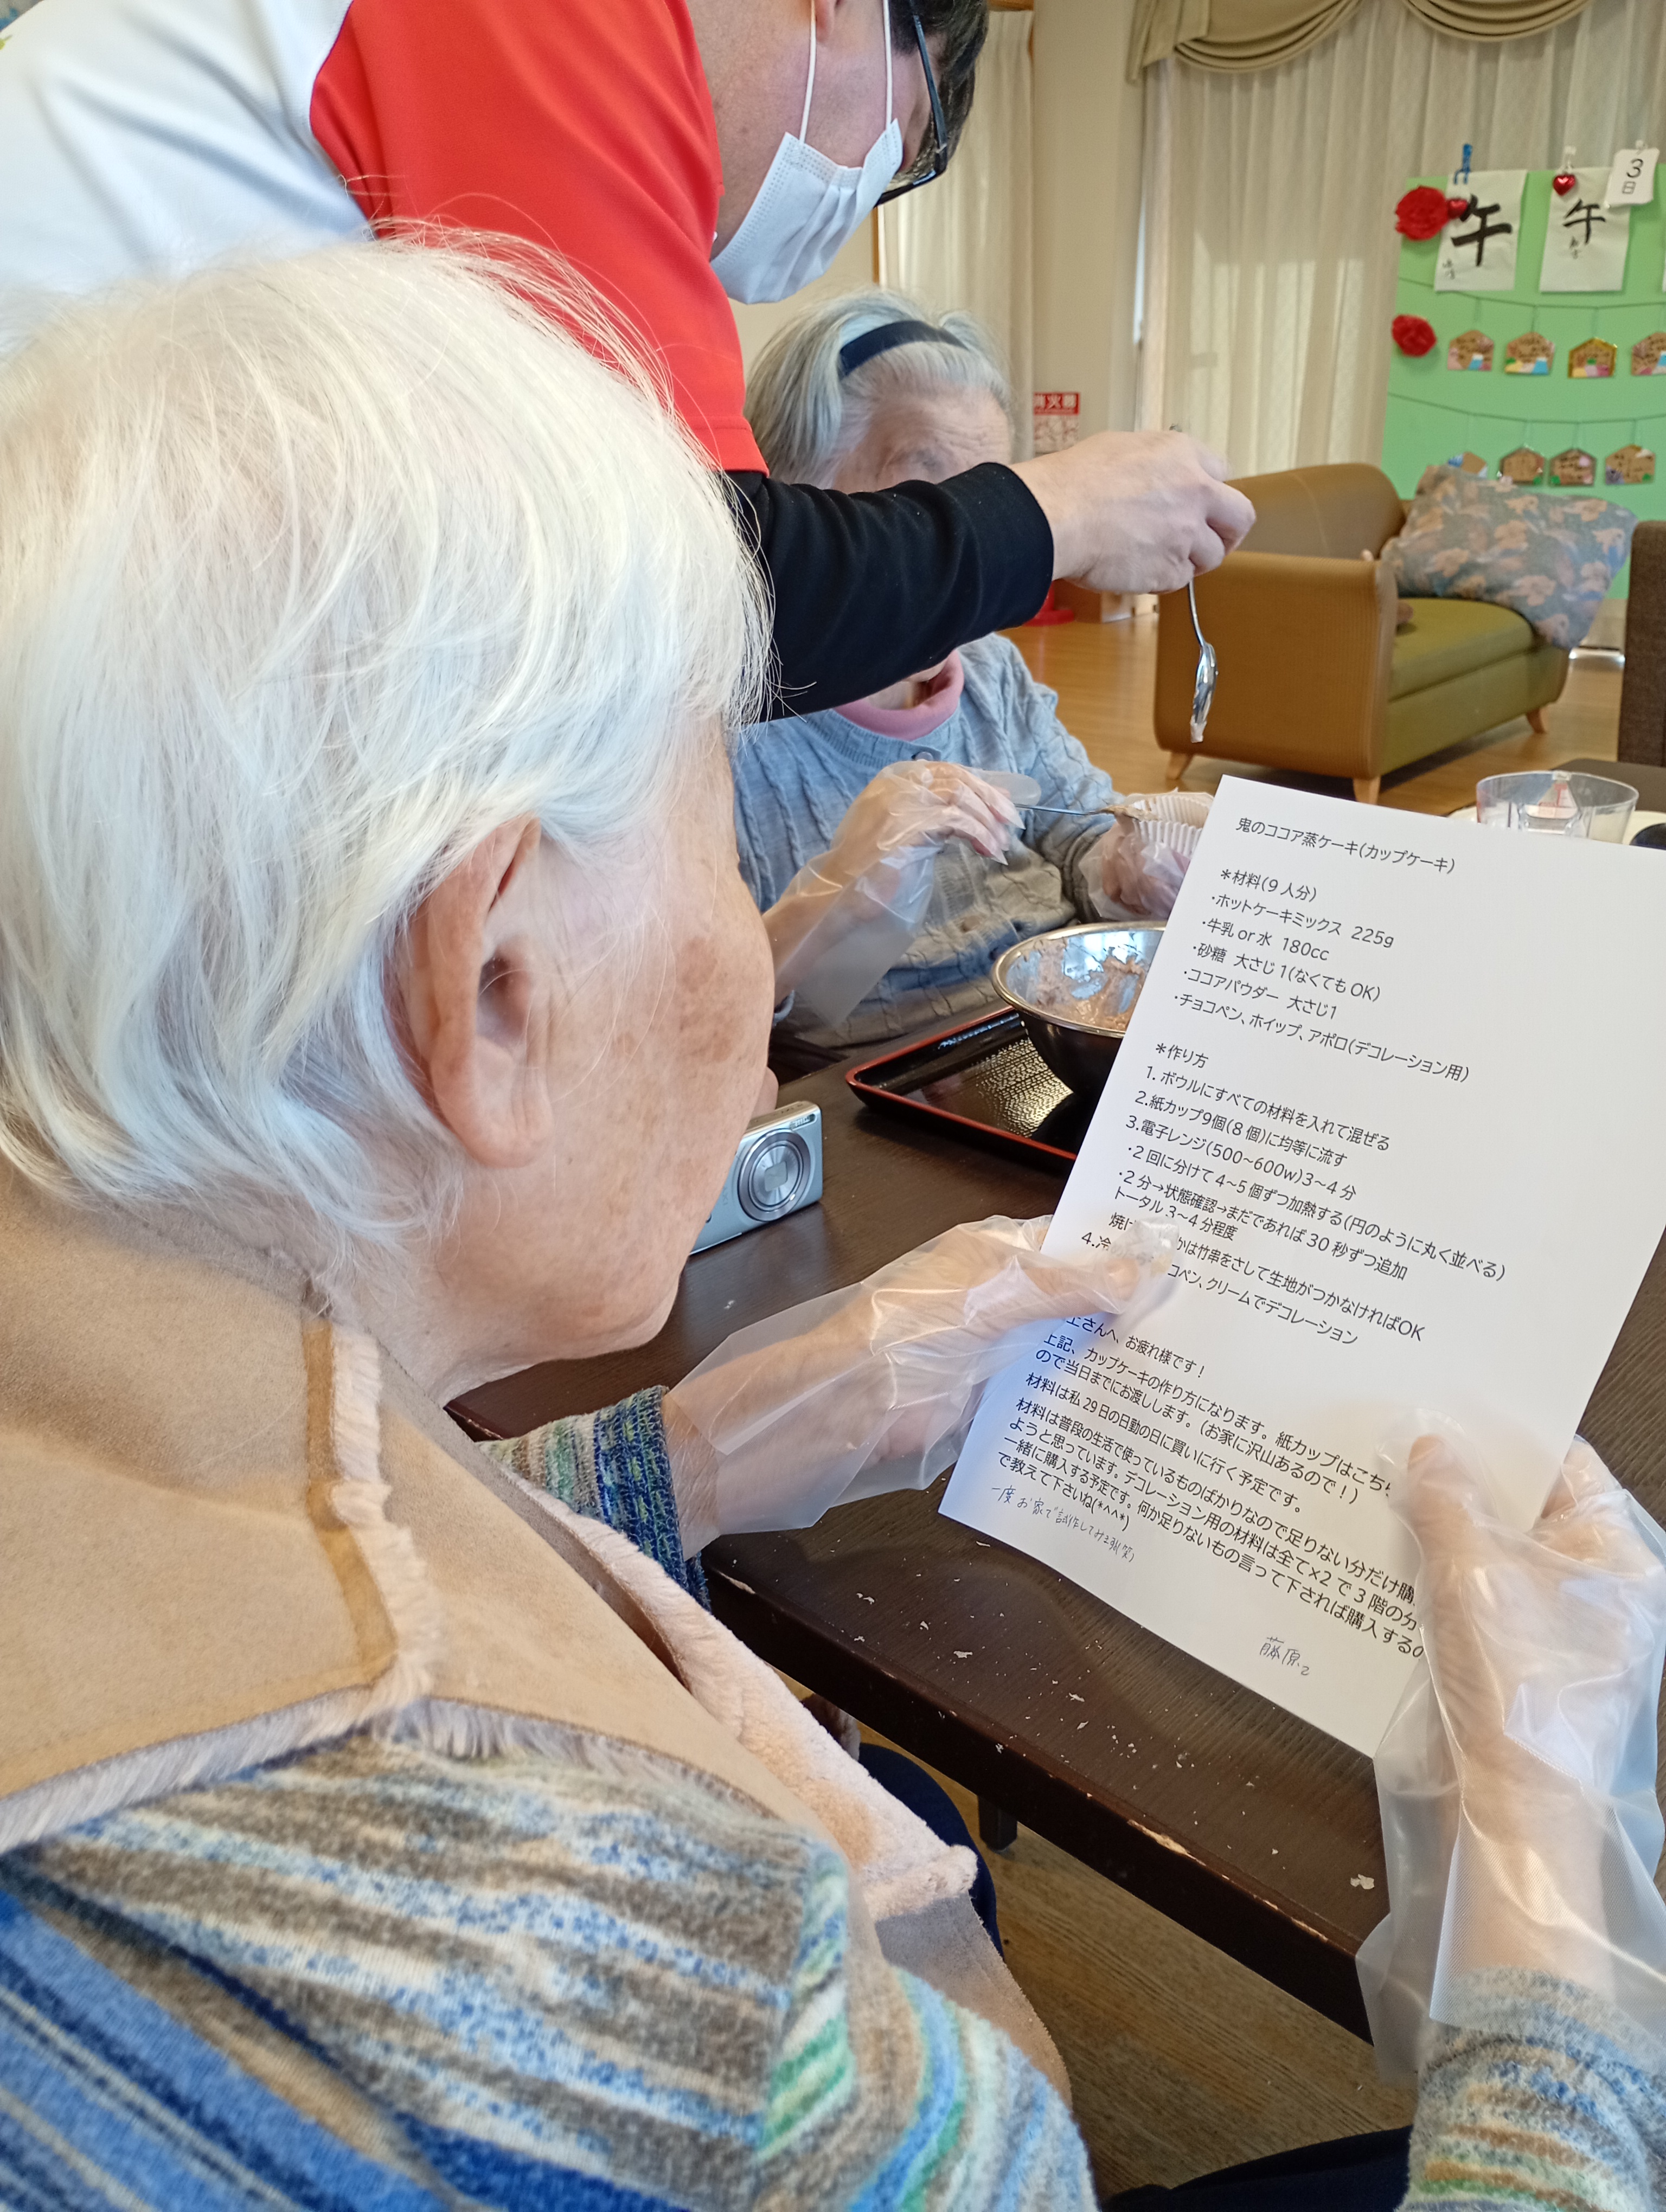 午
午
3
日
消火器
鬼のココア蒸ケーキ(カップケーキ)
＊材料(9人分)
・ホットケーキミックス 225g
・牛乳 or 水 180cc
・砂糖 大さじ1(なくてもOK)
・ココアパウダー 大さじ1
・チョコペン、ホイップ、アポロ(デコレーション用)
＊作り方
1. ボウルにすべての材料を入れて混ぜる
2.紙カップ9個(8個)に均等に流す
3.電子レンジ(500~600w)3~4分
・2回に分けて4~5個ずつ加熱する(円のように丸く並べる)
・2分→状態確認→まだであれば30秒ずつ追加
トータル3~4分程度
焼け かは竹串をさして生地がつかなければOK
4.冷 コペン、クリームでデコレーション
さんへ、お疲れ様です！
上記、カップケーキの作り方になります。紙カップはこちら
ので当日までにお渡しします。(お家に沢山あるので！)
材料は私29日の日勤の日に買いに行く予定です。
材料は普段の生活で使っているものばかりなので足りない分だけ購
ようと思っています。デコレーション用の材料は全て×2で3階の分
一緒に購入する予定です。何か足りないもの言って下されば購入するの
で教えて下さいね(*^^*)
一度お家で試作してみます(笑)
藤原